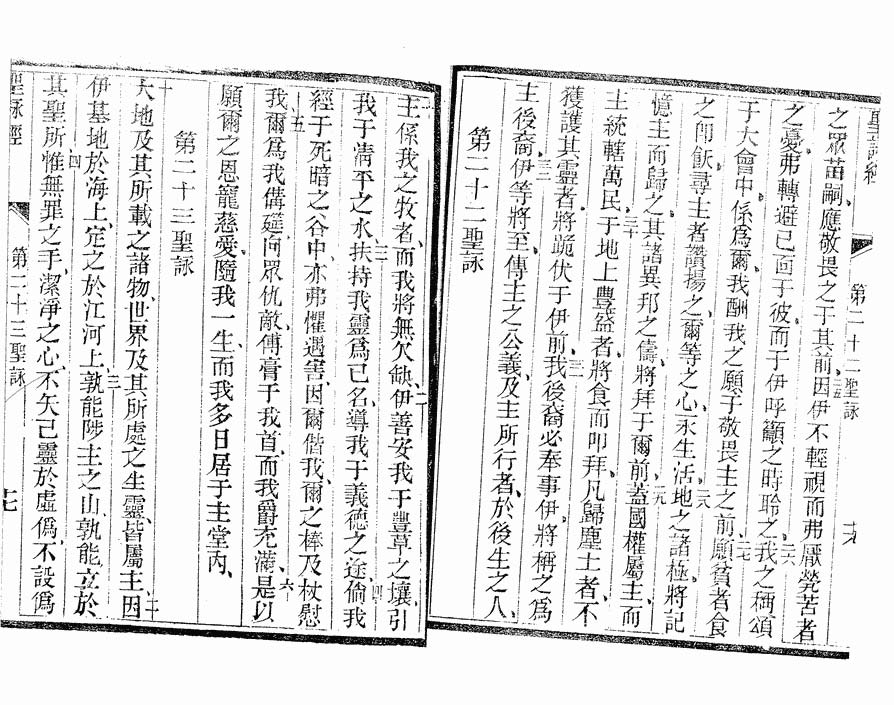 聖詠經
第二十二聖詠
之眾苗嗣、應敬畏之于其前、因伊不輕視而弗厭煢苦者
二五
之憂、弗轉避己面于彼、而于伊呼籲之時聆之、我之稱頌
二六
于大會中、係為爾、我酬我之願于敬畏主之前、願貧者食
二七
之卽飫、尋主者讚揚之、爾等之心永生活、地之諸極將記
二八
憶主而歸之、其諸異邦之儔、將拜于爾前、蓋國權屬主、而
二九
主統轄萬民、于地上豐盛者、將食而叩拜、凡歸塵土者、不
三十
獲護其靈者、將跪伏于伊前、我後裔必奉事伊、將稱之為
三一
主後裔、伊等將至、傳主之公義、及主所行者、於後生之人、
三二
第二十二聖詠
主係我之牧者、而我將無欠缺、伊善安我于豐草之壤、引
二
我于清平之水、扶持我靈、為己名、導我于義德之途、倘我
三
四
經于死暗之谷中、亦弗懼遇害、因爾偕我、爾之棒及杖慰
我、爾為我備筵、向眾仇敵、傅膏于我首、而我爵充滿、是以
五
六
願爾之恩寵慈愛隨我一生、而我多日居于主堂內、
第二十三聖詠
大地及其所載之諸物、世界及其所處之生靈、皆屬主、因
二
伊基地於海上、定之於江河上、孰能陟主之山、孰能立於
三
其聖所、惟無罪之手、潔淨之心、不矢己靈於虛偽、不設偽
四
聖詠經
第二十三聖詠